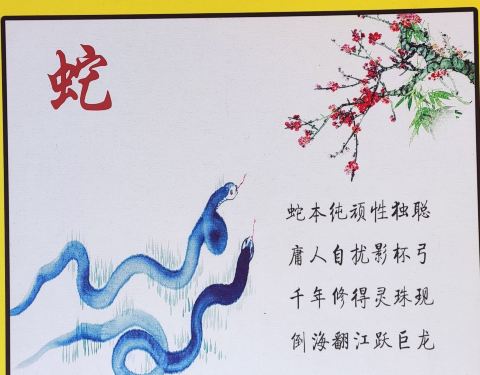 蛇
蛇本纯顽性独聪
庸人自扰影杯弓
千年修得灵珠现
倒海翻江跃巨龙